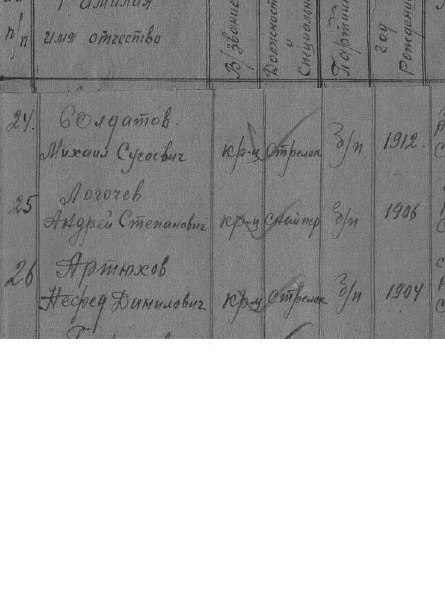 п/п
Фамилия
имя отчество
В/звание
Должность
и
Специальн
Партийн
год
Рождени
24. Солдатов.
Михаил Сусоевич кр-ц Стрелок б/п 1912.
25 Логочев
Андрей Степанович кр-ц б/п 1906
26 Артюхов
Данилович кр-ц Стрелок б/п 1904